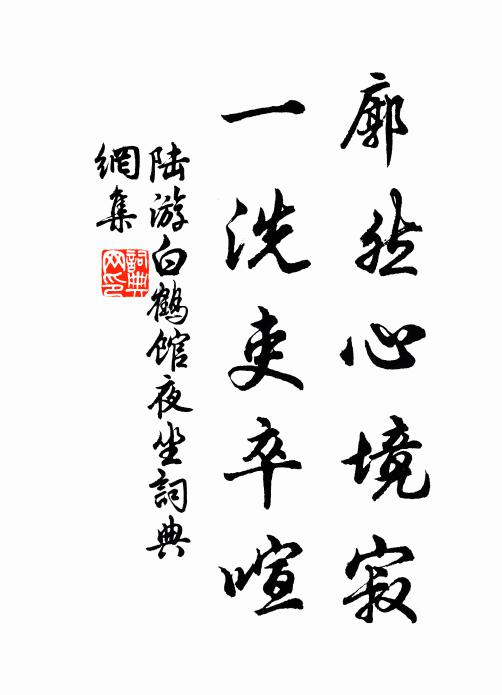 廓然心境寂
一洗吏卒喧
陆游白鹤馆夜坐詞典
網集
詞典
网印